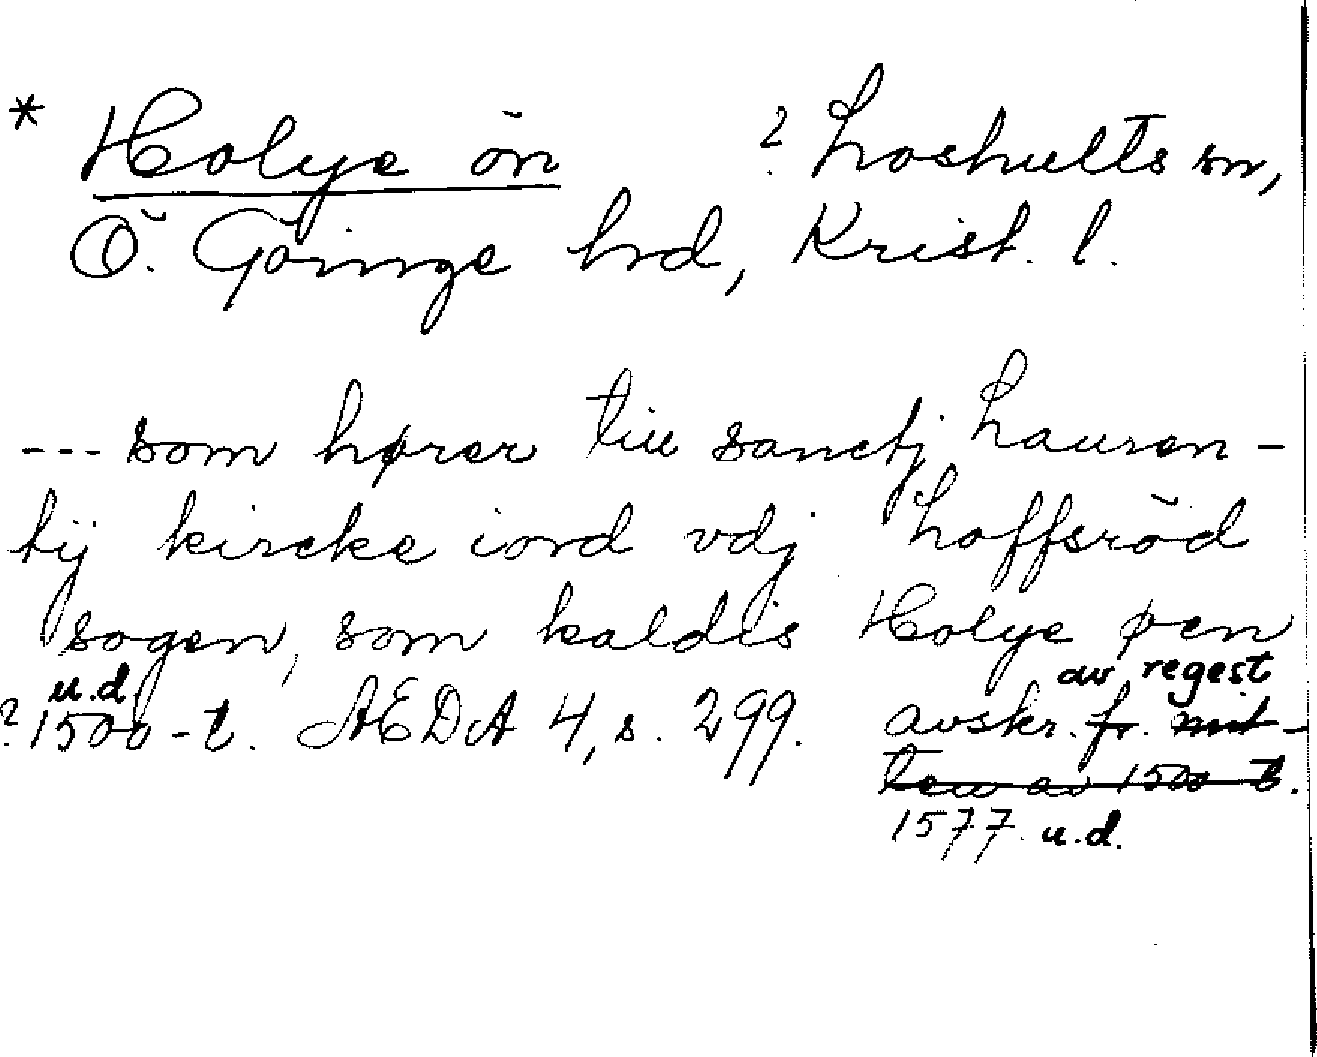 * Holye ön ? Loshults sn,
Ö. Göinge hd, Krist. l.
--- som hører till sanctj Lauren-
tij kircke iord vdj Loffsröd
sogen, som kaldis Holye øen
u.d. av regest
? 1500-t. AEDA 4, s. 299. avskr. fr. mit-
ten av 1500-t.
1577 u.d.